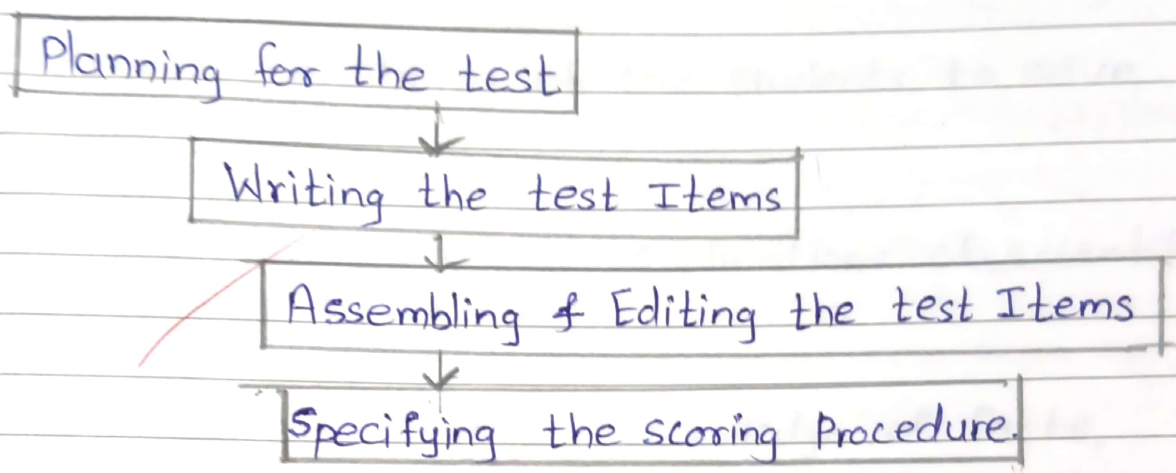 Planning for the test
Writing the test Items
Assembling & Editing the test Items
Specifying the scoring Procedure.